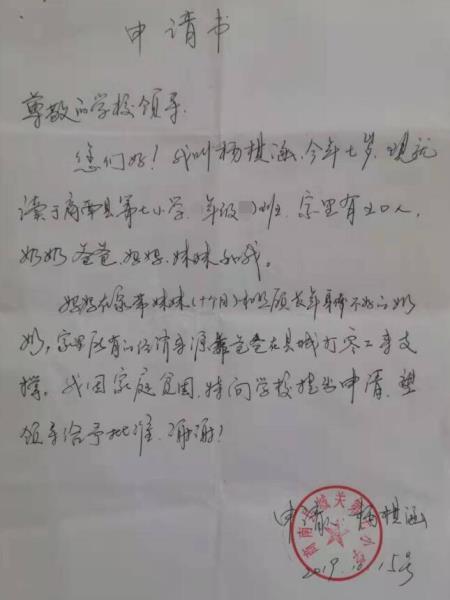 申请书
尊敬的学校领导:
您们好!我叫杨棋涵,今年七岁,现就
读于商南县第七小学.年级 班.家里有五口人,
奶奶爸爸、妈妈、妹妹和我。
妈妈在家带妹妹(十个月)和照顾长年身体不好的奶
奶,家里所有的经济来源靠爸爸在县城打零工来支
撑。我因家庭贫困,特向学校提出申请,望
领导给予批准.谢谢!
申请人 杨棋涵
2019. 15号